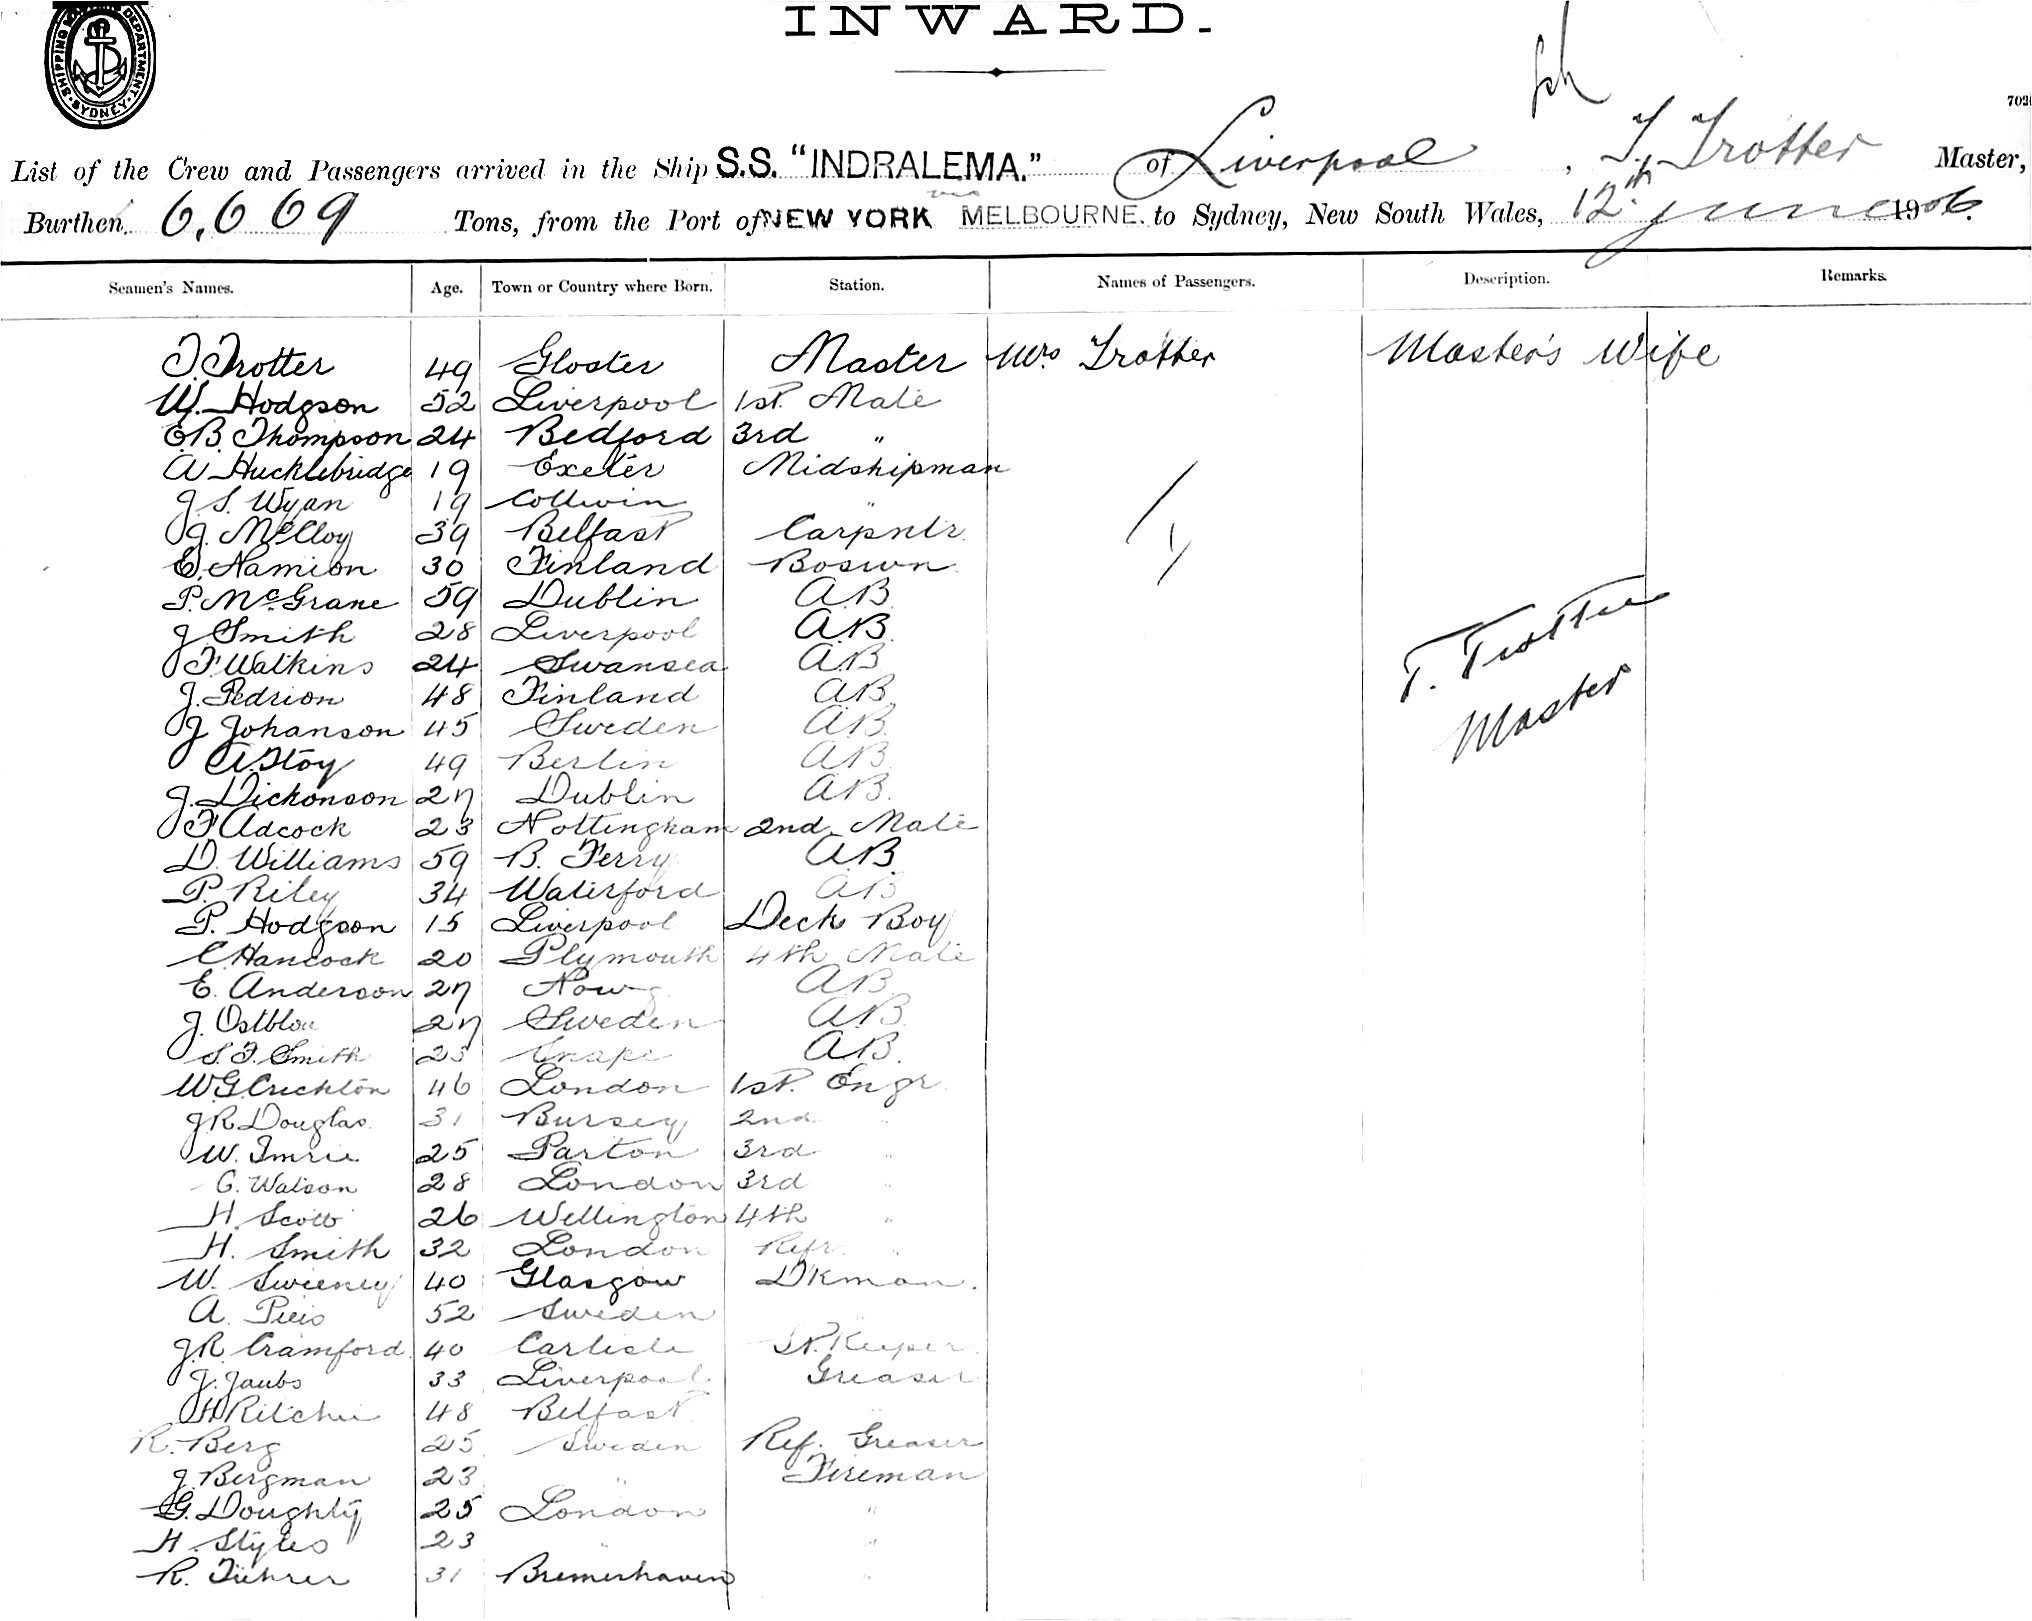 INWARD.
SHIPPING MASTER'S DEPARTMENT. SYDNEY.
List of the Crew and Passengers arrived in the Ship S.S. "INDRALEMA." of Liverpool, T. Trotter Master,
Burthen 6,669 Tons, from the Port of NEW YORK via MELBOURNE. to Sydney, New South Wales, 12th June 1906.
Seamen's Names. Age. Town or Country where Born. Station. Names of Passengers. Description. Remarks.
T. Trotter 49 Gloster Master Mrs Trotter Master's Wife
W. Hodgson 52 Liverpool 1st Mate
E.B. Thompson 24 Bedford 3rd "
A Hucklebridge 19 Exeter Midshipman
J. S. Wyan 19 Collwin "
J. McCloy 39 Belfast Carpntr.
E. Namion 30 Finland Boswn
P. McGrane 59 Dublin A.B.
J. Smith 28 Liverpool A.B.
F. Watkins 24 Swansea A.B.
T. Trotter
J. Pedrion 48 Finland A.B.
Master
J Johanson 45 Sweden A.B.
A. Stoy 49 Berlin A.B.
J. Dickonson 27 Dublin A.B.
F. Adcock 23 Nottingham 2nd Mate
D. Williams 59 B. Ferry A.B.
P. Riley 34 Waterford A.B.
P. Hodgson 15 Liverpool Deck Boy
C. Hancock 20 Plymouth 4th Mate
E. Anderson 27 Norwg. A.B.
J. Ostblou 27 Sweden A.B.
S. F. Smith 23 Snape A.B.
W.G. Crickton 46 London 1st. Engr.
J.R. Douglas. 31 Bursey 2nd "
W. Imrie 25 Parton 3rd "
G. Watson 28 London 3rd "
H. Scott 26 Wellington 4th "
H. Smith 32 London Refr. "
W. Sweeney 40 Glasgow Dkman.
A. 52 Sweden "
J.R. Cramford 40 Carlisle St. Keeper
J. Jaubs 33 Liverpool Greaser
H Ritchie 48 Belfast "
R. Berg 25 Sweden Ref. Greaser
J. Bergman 23 " Fireman
G. Doughty 25 London "
H. Styles 23 " "
R. Führer 31 Bremerhaven "